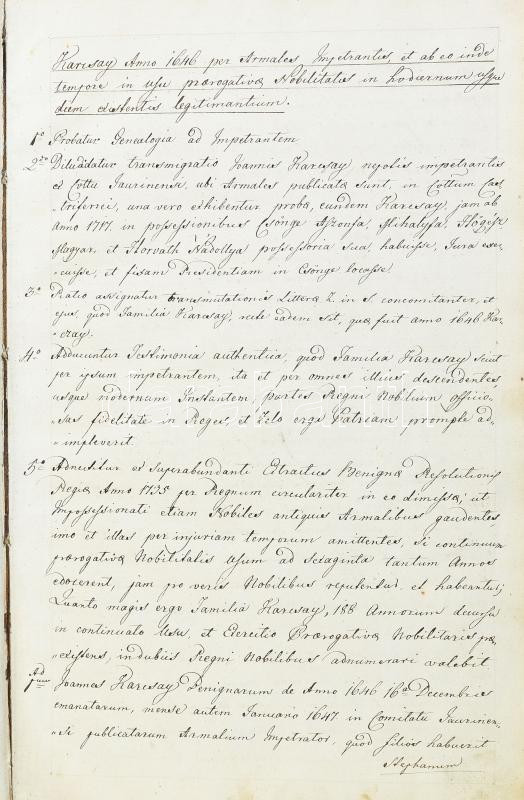 Karcsay Anno 1646 per Armales Impetrantis, et ab eo inde
tempore in usu prærogativæ Nobilitatis in hodiernum usque
diem existentis legitimantium.
1º Probatur Genealogia ad Impetrantem
2do Dilucidatur transmigratio Joannis Karcsay, nepotis impetrantis
ex Cottu Jaurinensi, ubi Armales publicatæ sunt, in Cottum Cas-
-triferrei, una vero exhibentur probæ, eundem Karcsay, jam ab
anno 1717. in possessionibus Csönge Aszonfa, Mihalyfa, Högyész
Magyar, et Horvath Nádallya possessoria sua, habuisse, Jura exer-
cuisse, et fixam Residentiam in Csönge locasse.
3º Ratio assignatur transmutationis Litteræ Z. in S. concomitanter, et
ejus, quod Familia Karcsay, recte eadem sit, quæ fuit anno 1646 Kar-
czay.
4º Adducuntur Testimonia authentica, quod Familia Karcsay sicut
per ipsum impetrantem, ita et per omnes illius descendentes
usque modernum Instantem, partes Regni Nobilium officio-
-sas fidelitate in Reges, et Zelo erga Patriam prompte ad-
-impleverit.
5º Adnectitur ex superabundanti Extractus Benignæ Resolutionis
Regiæ Anno 1735 per Regnum circulariter in eo dimissæ, ut
Impossessionati etiam Nobiles antiquis Armalibus gaudentes
imo et illas per injuriam temporum amittentes, si continuum
prærogativæ Nobilitalis usum ad sexaginta tantum Annos
edocerent, jam pro veris Nobilibus reputentur et habeantur;
Quanto magis ergo Familia Karcsay, 188 Annorum decursu
in continuato Usu, et Exercitio Prærogativæ Nobilitaris præ-
-existens, indubiis Regni Nobilibus adnumerari valebit
Ad
1mum Joannes Karcsay Benignarum de Anno 1646 16a Decembris
emanatarum, mense autem Januario 1647. in Comitatu Jaurinen-
-si publicatarum Armalium Impetrator, quod filios habuerit
Stephanum